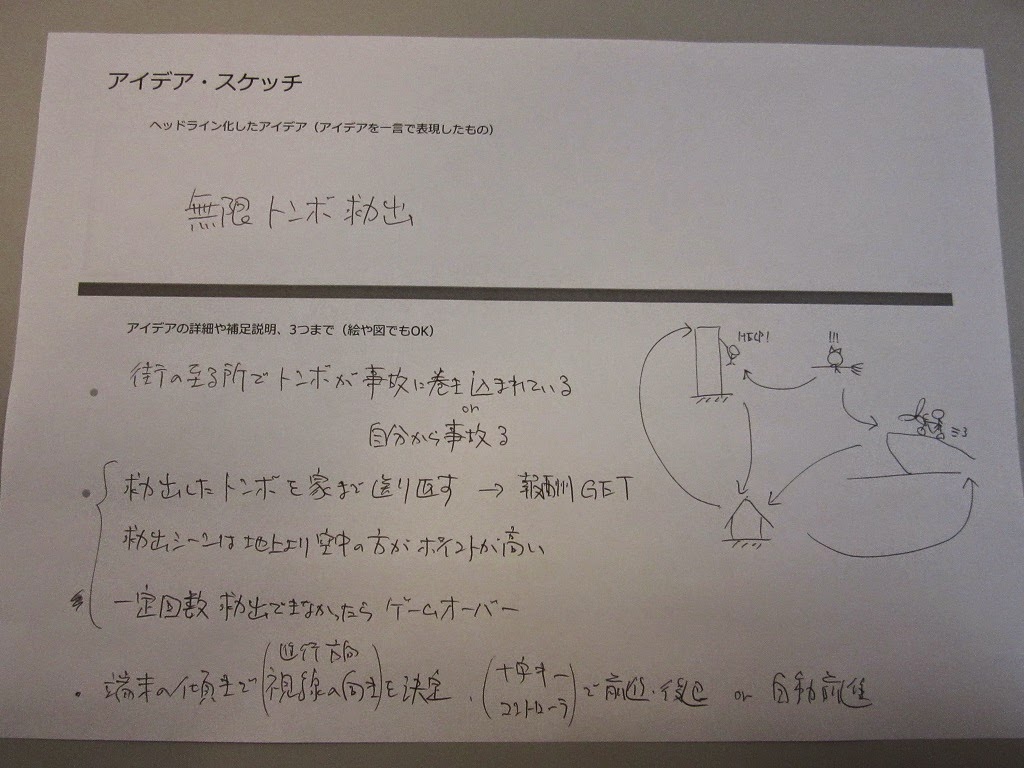 アイデア・スケッチ
ヘッドライン化したアイデア（アイデアを一言で表現したもの）
無限トンボ救出
アイデアの詳細や補足説明、3つまで（絵や図でもOK）
・街の至る所でトンボが事故に巻き込まれている
or
自分から事故る
・救出したトンボを家まで送り返す → 報酬GET
救出シーンは地上より空中の方がポイントが高い
一定回数救出できなかったらゲームオーバー
・端末の傾きで(進行方向 視線の向き)を決定、(十字キー コントローラ)で前進・後退 or 自動前進
HELP!
!!!